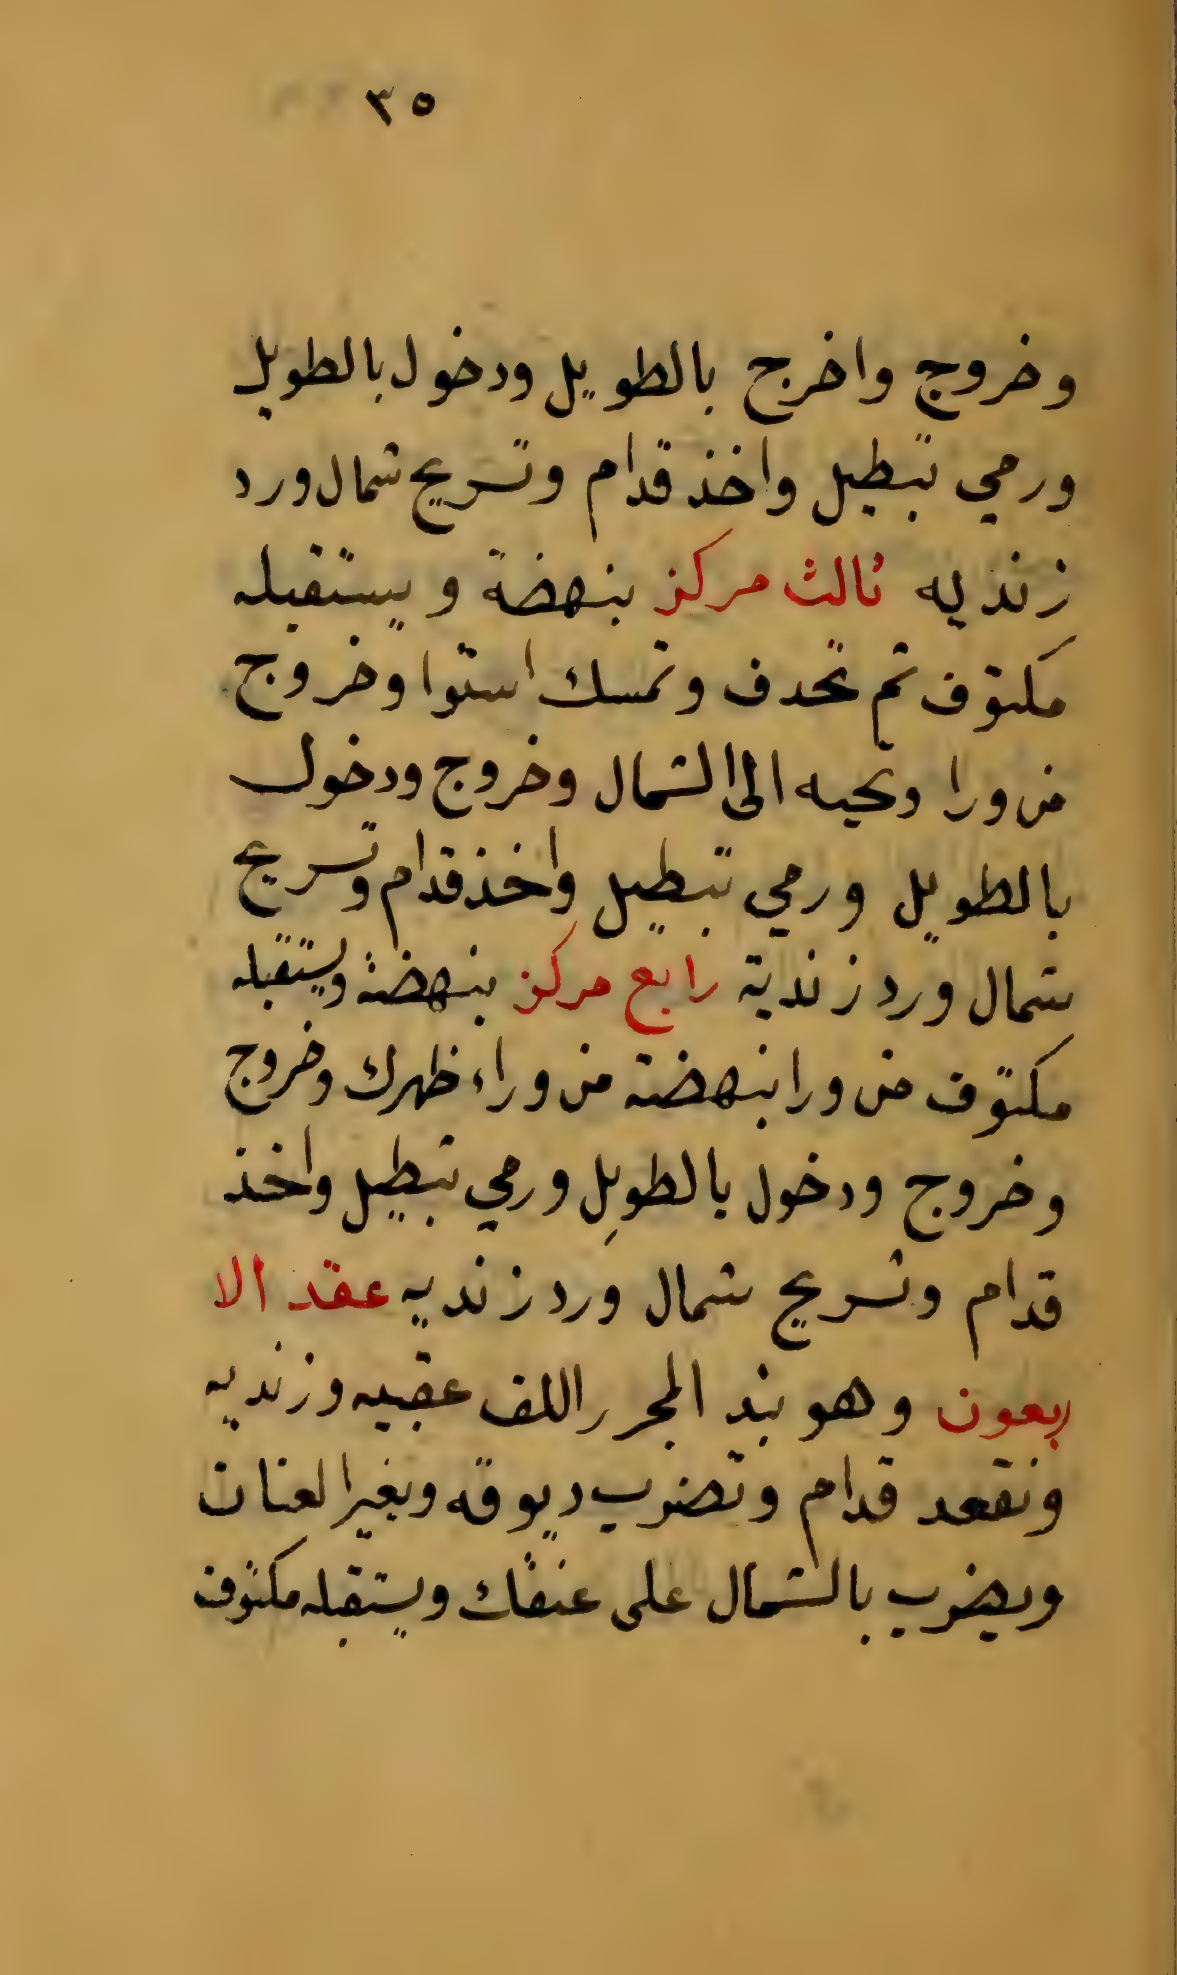 ٣٥
وخروج واخرج بالطويل ودخول بالطويل
ورمي تبطيل واخذ قدام وتسريح شمال ورد
زنديه ثالث مركز بنهضة ويستقبله
مكتوف ثم تحدف وتمسك استوا وخروج
من ورا وتجيه الى الشمال وخروج ودخول
بالطويل ورمي تبطيل واخذ قدام وتسريح
شمال ورد زندية رابع مركز بنهضة ويستقبله
مكتوف من ورا بنهضة من وراء ظهرك وخروج
وخروج ودخول بالطويل ورمي تبطيل واخذ
قدام وتسريح شمال ورد زنديه عقد الا
ربعون وهو بند المجر اللف عقبيه وزنديه
وتقعد قدام وتضرب ديوقه وتغير العنان
ويضرب بالشمال على عنقك ويستقبله مكتوف